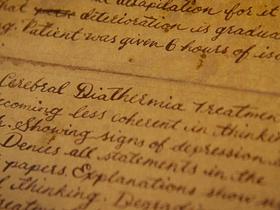 that deterioration is gradua
g. Patient was given 6 hours of iso
Cerebral Diathermia Treatmen
ecoming less coherent in thinkin
. Showing signs of depression
Denies all statements in the
papers. Explanations show
thinking. Degradi